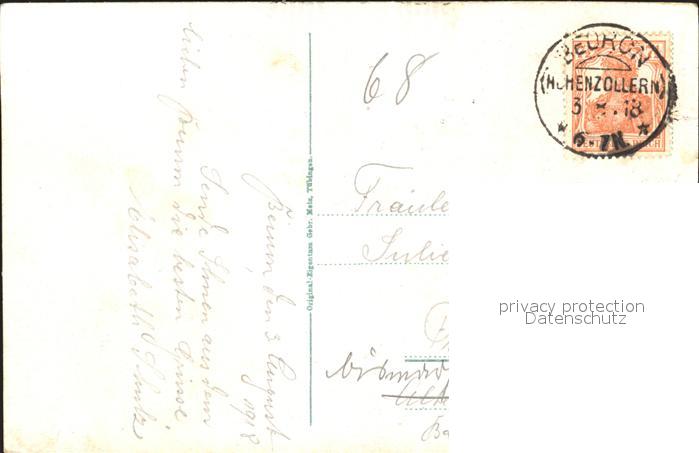 68
BEURON
(HOHENZOLLERN)
3 8.18
* 6-7N. *
Beuron den 3. August
1918
Sende Ihnen aus dem
lieben Beuron die besten Grüsse
Elisabeth
Original-Eigentum Gebr. Metz, Tübingen.
Fräule
Julie
privacy protection
Datenschutz